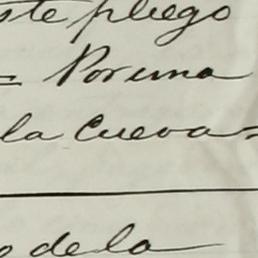 ste pliego
= Por una
la Cueva=
o de la